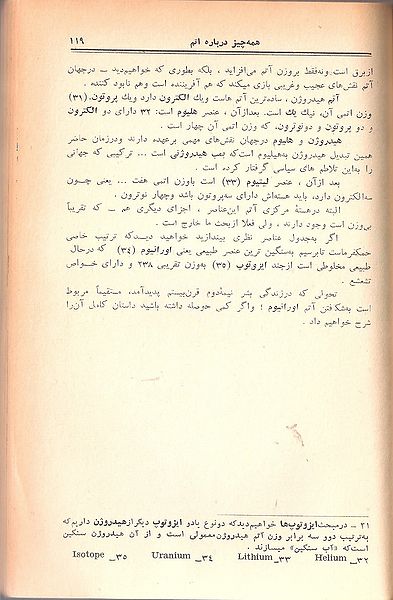 همه‌چیز درباره اتم ۱۱۹
از برق است و نه‌فقط بروزن آتم می‌افزاید ، بلکه بطوری که خواهیم‌دید ــ درجهان
آتم نقش‌های عجیب و غریبی بازی میکند که هم آفریننده است وهم نابود کننده .
آتم هیدروژن ، ساده‌ترین آتم هاست ویك الکترون دارد ویك پروتون. (۳۱)
وزن اتمی آن، نیك یك است. بعدازآن ، عنصر هلیوم است: ۳۲ دارای دو الکترون
و دو پروتون و دونوترون. که وزن اتمی آن چهار است .
هیدروژن و هلیوم درجهان نقش‌های مهمی برعهده دارند ودرزمان حاضر
همین تبدیل هیدروژن به‌هلیوم است‌که بمب هیدروژنی است ... ترکیبی که جهانی
را به‌این تلاطم های سیاسی گرفتار کرده است .
بعد ازآن ، عنصر لیتیوم (۳۳) است باوزن اتمی هفت ... یعنی چون
سه‌الکترون دارد، باید هسته‌اش دارای سه‌پروتون باشد وچهار نوترون .
البته درهستهٔ مرکزی آتم این‌عناصر ، اجزای دیگری هم ــ که تقریباً
بی‌وزن است وجود دارند ، ولی فعلا ازبحث ما خارج است .
اگر به‌جدول عناصر نظری بیندازید خواهید دیدــکه ترتیب خاصی
حکمفرماست تابرسیم به‌سنگین ترین عنصر طبیعی یعنی اورانیوم (۳۴) که درحال
طبیعی مخلوطی است ازچند ایزوتوپ (۳۵) به‌وزن تقریبی ۲۳۸ و دارای خواص
تشعشع .
تحولی که درزندگی بشر نیمه‌دوم قرن‌بیستم پدیدآمد، مستقیماً مربوط
است به‌شکفتن آتم اورانیوم ؛ واگر کمی حوصله داشته باشید داستان کامل آن‌را
شرح خواهیم داد .
۳۱ ــ درمبحث ایزوتوپ‌ها خواهیم‌دیدکه دونوع یادو ایزوتوپ دیگراز هیدروژن داریم‌که
به‌ترتیب دوو سه برابر وزن آتم هیدروژن‌معمولی است و از آن هیدروژن سنگین
است‌که «آب سنگین» میسازند .
Helium _۳۲ Lithium_۳۳ Uranium _۳۴ Isotope _۳۵